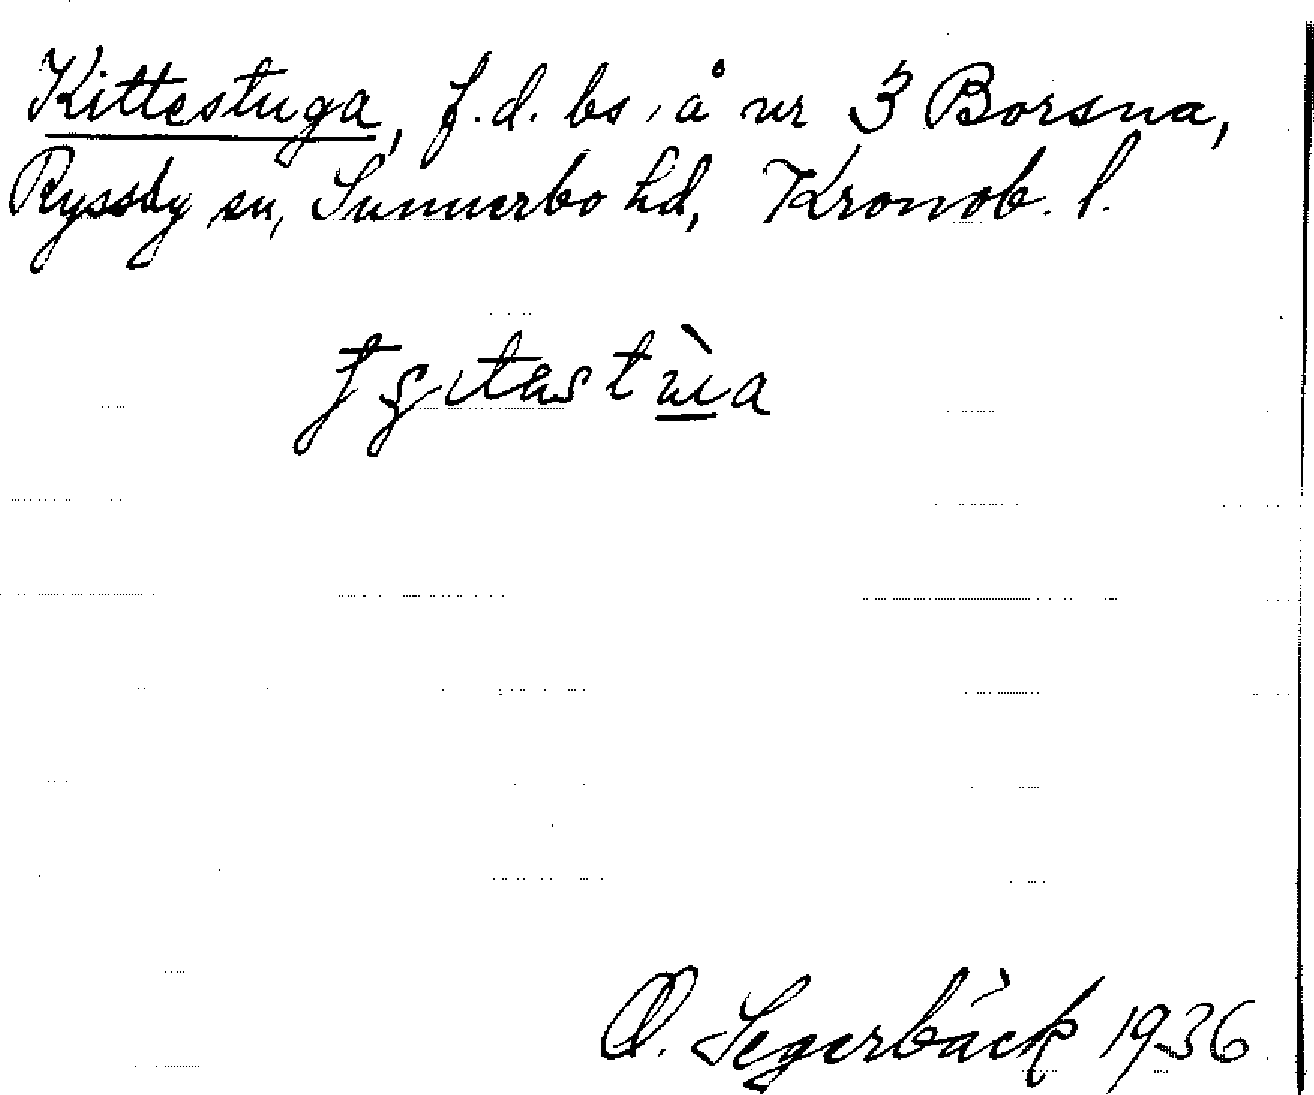 Kittestuga, f.d. bs, å nr 3 Borsna,
Ryssby sn, Sunnerbo hd, Kronob. l.
O. Segerbäck 1936